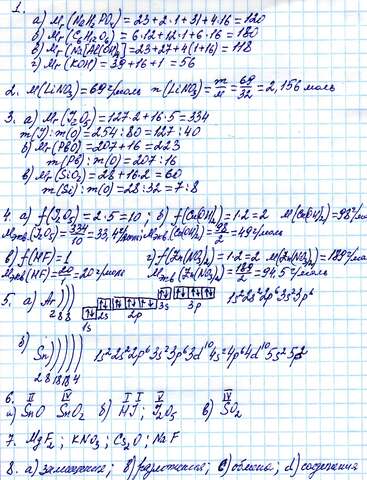 1.
а) Mr(NaH2PO4) = 23 + 2·1 + 31 + 4·16 = 120
б) Mr(C6H12O6) = 6·12 + 12·1 + 6·16 = 180
в) Mr(Na[Al(OH)4] = 23 + 27 + 4(1+16) = 118
г) Mr(KOH) = 39 + 16 + 1 = 56
2. M(LiNO3) = 69 г/моль n(LiNO3) = m/M = 69/32 = 2,156 моль
3. а) Mr(I2O5) = 127·2 + 16·5 = 334
m(I) : m(O) = 254 : 80 = 127 : 40
б) Mr(PbO) = 207 + 16 = 223
m(Pb) : m(O) = 207 : 16
в) Mr(SiO2) = 28 + 16·2 = 60
m(Si) : m(O) = 28 : 32 = 7 : 8
4. а) f(I2O5) = 2·5 = 10; б) f(Cu(OH)2) = 1·2 = 2 M(Cu(OH)2) = 98 г/мол
Mэкв.(I2O5) = 334/10 = 33,4 г/моль Mэкв.(Cu(OH)2) = 98/2 = 49 г/моль
в) f(HF) = 1 г) f(Zn(NO3)2) = 1·2 = 2 M(Zn(NO3)2) = 189 г/мол
Mэкв(HF) = 20 = 20 г/моль Mэкв(Zn(NO3)2) = 189/2 = 94.5 г/моль
5. а) Ar ) ) ) 1s² 2s² 2p⁶ 3s² 3p⁶
2 8 8 3s 3p
2s 2p
1s
б)
Sn ) ) ) ) ) 1s² 2s² 2p⁶ 3s² 3p⁶ 3d¹⁰ 4s² 4p⁶ 4d¹⁰ 5s² 5p²
2 8 18 18 4
6. II IV I I V IV
а) SnO SnO2 б) HI; I2O5 в) SO2
7. MgF2; KNO3; Cs2O; NaF
8. а) замещение; b) разложения; c) обмена; d) соединения